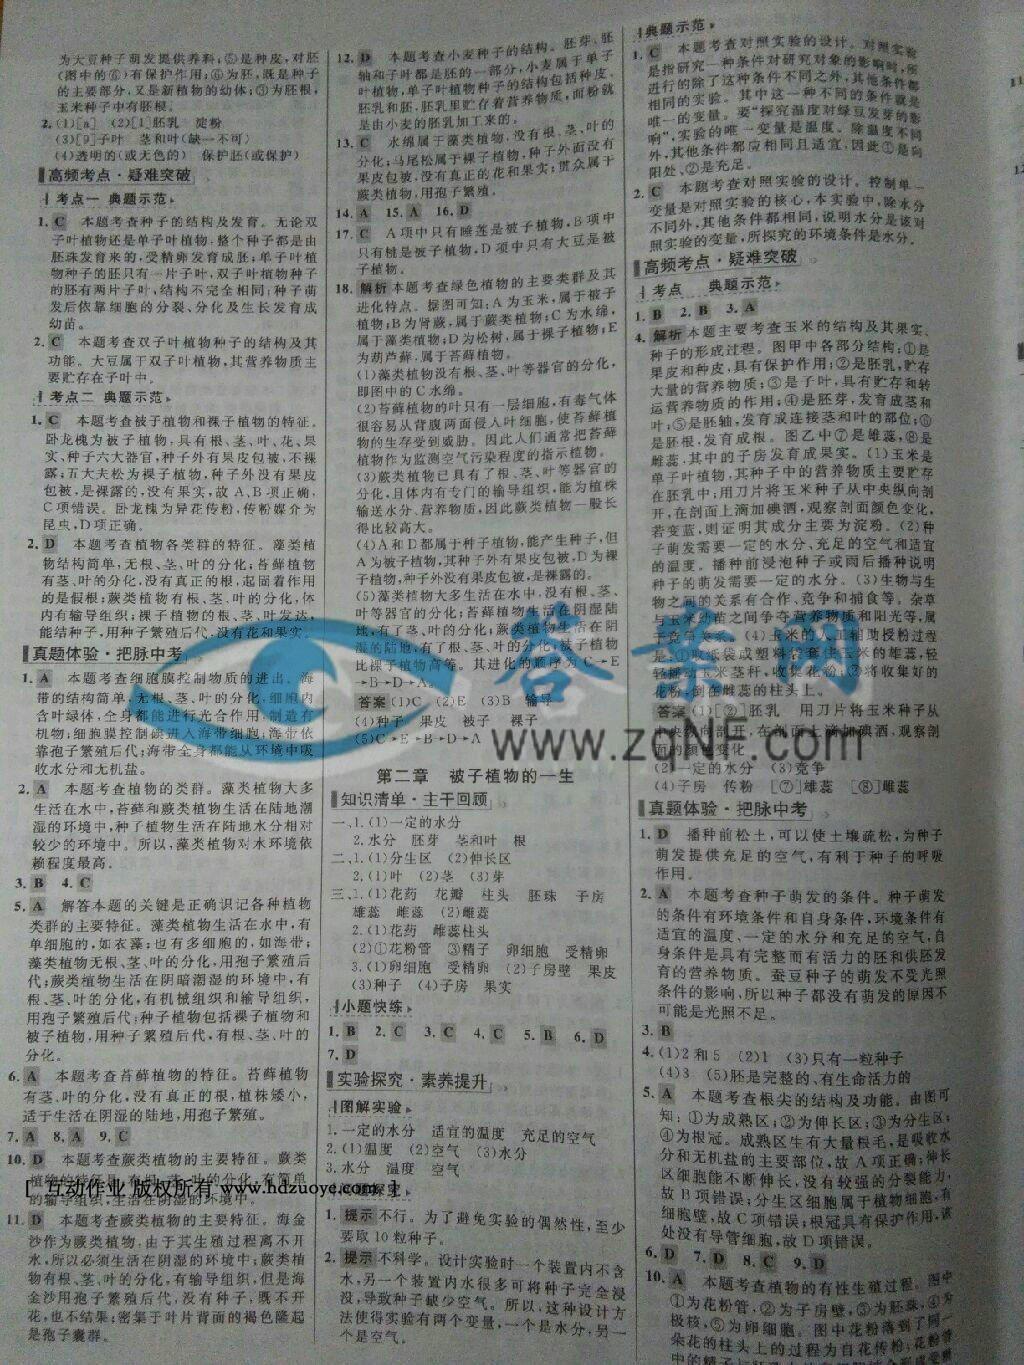 为大豆种子萌发提供养料;⑤是种皮,对胚
(图中的⑥)有保护作用;⑥为胚,既是种子
的主要部分,又是新植物的幼体;③为胚根,
玉米种子中有胚根。
2.(1)[a] (2)[1]胚乳 淀粉
(3)[9]子叶 茎和叶(缺一不可)
(4)透明的(或无色的) 保护胚(或保护)
高频考点·疑难突破
考点一 典题示范
1. C 本题考查种子的结构及发育。无论双
子叶植物还是单子叶植物,整个种子都是由
胚珠发育来的,受精卵发育成胚;单子叶植
物种子的胚只有一片子叶,双子叶植物种子
的胚有两片子叶,结构不完全相同;种子萌
发后依靠细胞的分裂、分化及生长发育成
幼苗。
2. C 本题考查双子叶植物种子的结构及其
功能。大豆属于双子叶植物,其营养物质主
要贮存在子叶中。
考点二 典题示范
1. C 本题考查被子植物和裸子植物的特征。
卧龙槐为被子植物,具有根、茎、叶、花、果
实、种子六大器官,种子外有果皮包被,不裸
露;五大夫松为裸子植物,种子外没有果皮
包被,是裸露的,没有果实,故A、B项正确,
C项错误。卧龙槐为异花传粉,传粉媒介为
昆虫,D项正确。
2. D 本题考查植物各类群的特征。藻类植
物结构简单,无根、茎、叶的分化;苔藓植物
有茎、叶的分化,没有真正的根,起固着作用
的是假根;蕨类植物有根、茎、叶的分化,体
内有输导组织;裸子植物的根、茎、叶发达,
能结种子,用种子繁殖后代,没有花和果实。
真题体验·把脉中考
1. A 本题考查细胞膜控制物质的进出。海
带的结构简单,无根、茎、叶的分化,细胞内
含叶绿体,全身都能进行光合作用,制造有
机物;细胞膜控制碘进入海带细胞;海带依
靠孢子繁殖后代;海带全身都能从环境中吸
收水分和无机盐。
2. A 本题考查植物的类群。藻类植物大多
生活在水中,苔藓和蕨类植物生活在陆地潮
湿的环境中,种子植物生活在陆地水分相对
较少的环境中。所以,藻类植物对水环境依
赖程度最高。
3. B 4. C
5. A 解答本题的关键是正确识记各种植物
类群的主要特征。藻类植物生活在水中,有
单细胞的,如衣藻;也有多细胞的,如海带;
藻类植物无根、茎、叶的分化,用孢子繁殖后
代;蕨类植物生活在阴暗潮湿的环境中,有
根、茎、叶的分化,有机械组织和输导组织,
用孢子繁殖后代;种子植物包括裸子植物和
被子植物,用种子繁殖后代,有根、茎、叶的
分化。
6. A 本题考查苔藓植物的特征。苔藓植物
有茎、叶的分化,没有真正的根,植株矮小,
适于生活在阴湿的陆地,用孢子繁殖。
7. A 8. A 9. C
10. D 本题考查蕨类植物的主要特征。蕨类
[ 互动作业 版权所有 www.hdzuoye.com ]
导组织,生活在阴湿的环境中。
11. D 本题考查蕨类植物的主要特征。海金
沙作为蕨类植物,由于其生殖过程离不开
水,所以必须生活在阴湿的环境中;蕨类植
物有根、茎、叶的分化,有输导组织,但是海
金沙用孢子繁殖后代,没有种子,既不开
花,也不结果;密集于叶片背面的褐色隆起
是孢子囊群。
12. D 本题考查小麦种子的结构。胚芽、胚
轴和子叶都是胚的一部分,小麦属于单子
叶植物,单子叶植物种子的结构包括种皮、
胚乳和胚,胚乳里贮存着营养物质,面粉就
是由小麦的胚乳加工来的。
13. C 水绵属于藻类植物,没有根、茎、叶的
分化;马尾松属于裸子植物,种子外面没有
果皮包被,没有真正的花和果实;贯众属于
蕨类植物,用孢子繁殖。
14. A 15. A 16. D
17. C A项中只有睡莲是被子植物,B项中
只有桃是被子植物,D项中只有大豆是被
子植物。
18. 解析 本题考查绿色植物的主要类群及其
进化特点。据图可知:A为玉米,属于被子
植物;B为肾蕨,属于蕨类植物;C为水绵,
属于藻类植物;D为松树,属于裸子植物;E
为葫芦藓,属于苔藓植物。
(1)藻类植物没有根、茎、叶等器官的分化,
即图中的C水绵。
(2)苔藓植物的叶只有一层细胞,有毒气体
很容易从背腹两面侵入叶细胞,使苔藓植
物的生存受到威胁。因此人们通常把苔藓
植物作为监测空气污染程度的指示植物。
(3)蕨类植物已具有了根、茎、叶等器官的
分化,且体内有专门的输导组织,能为植株
输送水分、营养物质,因此蕨类植物一般长
得比较高大。
(4)A和D都属于种子植物,能产生种子,但
A为被子植物,其种子外有果皮包被,D为裸
子植物,种子外没有果皮包被,是裸露的。
(5)藻类植物大多生活在水中,没有根、茎、
叶等器官的分化;苔藓植物生活在阴湿陆
地,有了茎、叶的分化;蕨类植物生活在阴
湿的陆地,有了根、茎、叶的分化;被子植物
比裸子植物高等。其进化的顺序为C→E
→B→D→A。
答案 (1)C (2)E (3)B 输导
(4)种子 果皮 被子 裸子
(5)C→E→B→D→A
第二章 被子植物的一生
知识清单·主干回顾
一、1.(1)一定的水分
2.水分 胚芽 茎和叶 根
二、1.(1)分生区 (2)伸长区
2.(1)叶 (2)茎 (3)芽
三、1.(1)花药 花瓣 柱头 胚珠 子房
雄蕊 雌蕊 (2)雌蕊
2.(1)花药 雌蕊柱头
(2)①花粉管 ③精子 卵细胞 受精卵
3.(1)卵细胞 受精卵 (2)子房壁 果皮
(3)种子 (4)子房 果实
小题快练
1. B 2. C 3. C 4. C 5. B 6. D
7. D
实验探究·素养提升
图解实验
1.一定的水分 适宜的温度 充足的空气
2.(1)温度 (2)空气 (3)水分
3.水分 温度 空气
问题探究
1. 提示 不行。为了避免实验的偶然性,至少
要取10粒种子。
2. 提示 不科学。设计实验时一个装置内不含
水,另一个装置内水很多可将种子完全浸
没,导致种子缺少空气。所以,这种设计方
法使得实验有两个变量,一个是水分,另一
个是空气。
典题示范
1. C 本题考查对照实验的设计。对照实验
是指研究一种条件对研究对象的影响时,所
进行的除了这种条件不同之外,其他条件都
相同的实验。其中这一种不同的条件就是
唯一的变量。要“探究温度对绿豆发芽的影
响”,实验的唯一变量是温度。除温度不同
外,其他条件都应相同且适宜,因此①是向
阳处、②是充足。
2. C 本题考查对照实验的设计。控制单一
变量是对照实验的核心,本实验中,除水分
不同外,其他条件都相同,说明水分是该对
照实验的变量,所探究的环境条件是水分。
高频考点·疑难突破
考点 典题示范
1. B 2. B 3. A
4. 解析 本题主要考查玉米的结构及其果实、
种子的形成过程。图甲中各部分结构:①是
果皮和种皮,具有保护作用;②是胚乳,贮存
大量的营养物质;③是子叶,具有贮存和转
运营养物质的作用;④是胚芽,发育成茎和
叶;⑤是胚轴,发育成连接茎和叶的部位;⑥
是胚根,发育成根。图乙中⑦是雄蕊,⑧是
雌蕊,其中的子房发育成果实。(1)玉米是
单子叶植物,其种子中的营养物质主要贮存
在胚乳中;用刀片将玉米种子从中央纵向剖
开,在剖面上滴加碘酒,观察剖面颜色变化,
若变蓝,则证明其成分主要为淀粉。(2)种
子萌发需要一定的水分、充足的空气和适宜
的温度。播种前浸泡种子或雨后播种说明
种子的萌发需要一定的水分。(3)生物与生
物之间的关系有合作、竞争和捕食等。杂草
与玉米幼苗之间争夺营养物质和阳光等,属
于竞争关系。(4)玉米的人工辅助授粉过程
是:①收纸袋或塑料袋套住玉米的雄蕊,轻
轻摇动玉米茎秆,收集花粉;③将收集好的
花粉,倒在雌蕊的柱头上。
答案 (1)[②]胚乳 用刀片将玉米种子从
中央纵向剖开,在剖面上滴加碘酒,观察剖
面的颜色变化
(2)一定的水分 (3)竞争
(4)子房 传粉 [⑦]雄蕊 [⑧]雌蕊
真题体验·把脉中考
1. D 播种前松土,可以使土壤疏松,为种子
萌发提供充足的空气,有利于种子的呼吸
作用。
2. A 本题考查种子萌发的条件。种子萌发
的条件有环境条件和自身条件,环境条件有
适宜的温度、一定的水分和充足的空气,自
身条件是具有完整而有活力的胚和供胚发
育的营养物质。蚕豆种子的萌发不受光照
条件的影响,所以种子都没有萌发的原因不
可能是光照不足。
3. B
4.(1)2和5 (2)1 (3)只有一粒种子
(4)3 (5)胚是完整的、有生命活力的
5. A 本题考查根尖的结构及功能。由图可
知:①为成熟区;②为伸长区;③为分生区;
④为根冠。成熟区生有大量根毛,是吸收水
分和无机盐的主要部位,故A项正确;伸长
区细胞能不断伸长,没有较强的分裂能力,
故B项错误;分生区细胞属于植物细胞,有
细胞壁,故C项错误;根冠具有保护作用,该
处没有导管细胞,故D项错误。
6. D 7. D 8. C 9. D
10. A 本题考查植物的有性生殖过程。图中
①为花粉管,②为子房壁,③为胚珠,④为
极核,⑤为卵细胞。图中花粉落到了同一
朵花的柱头上的过程为自花传粉;花粉管
答案网
www.zqnf.com